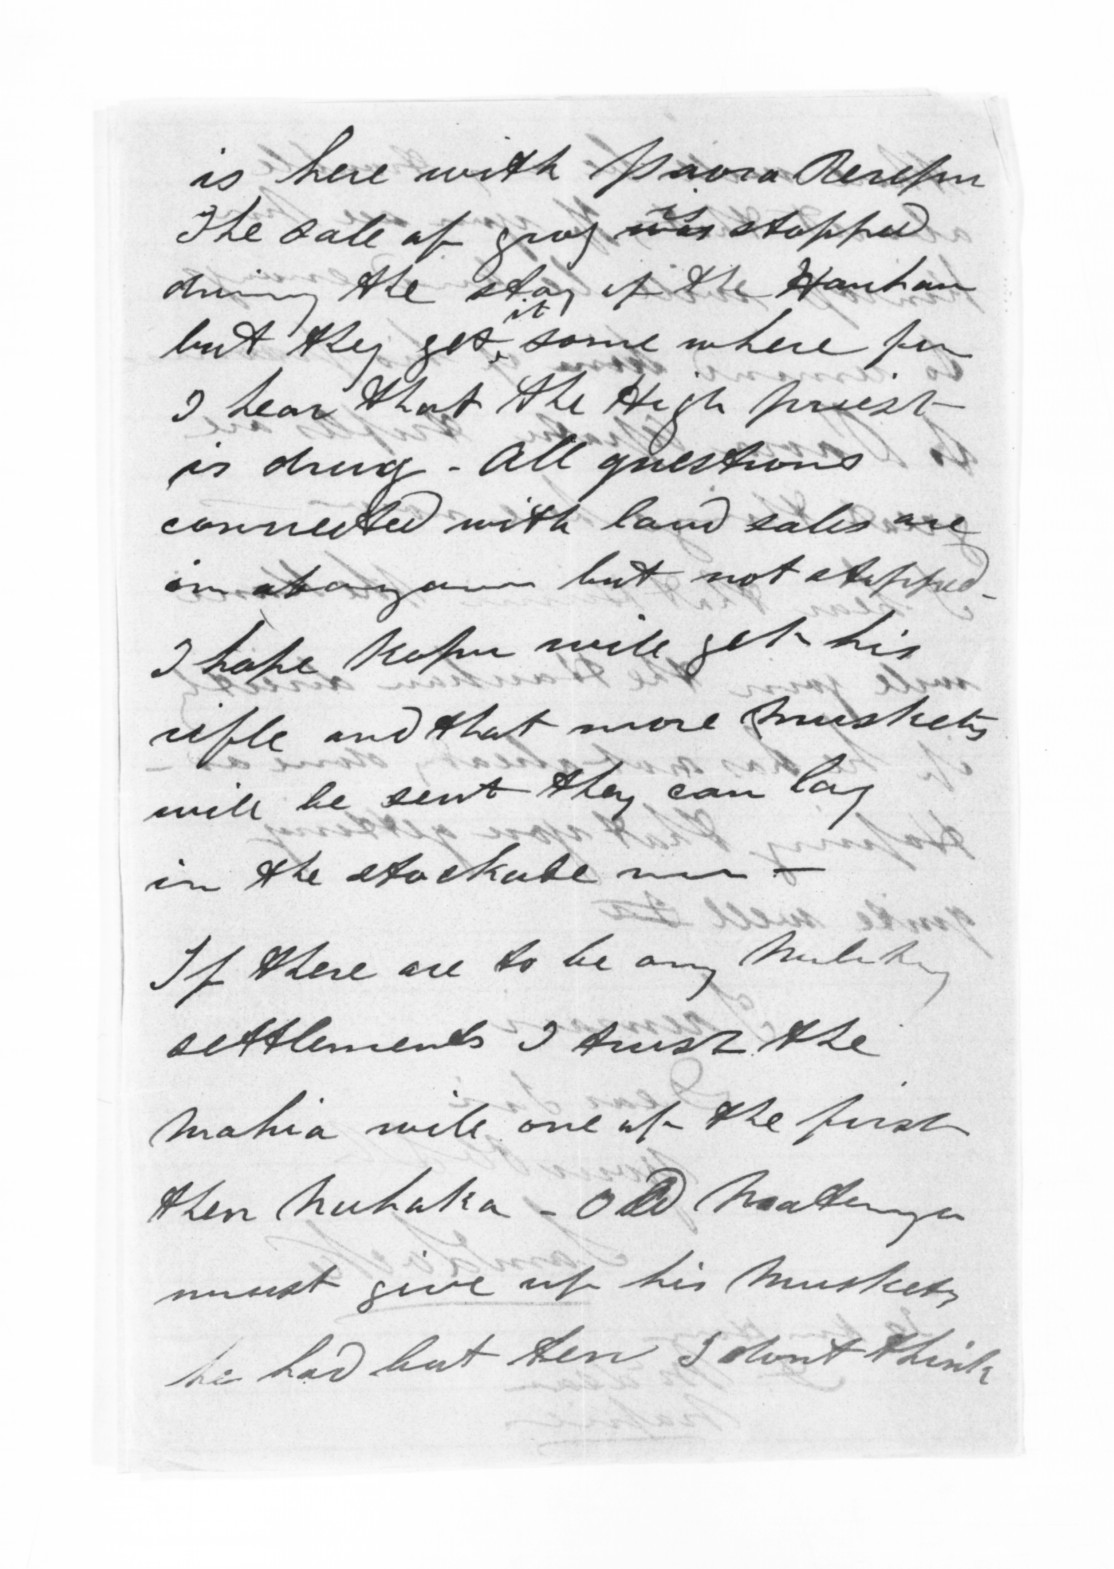 is here with Paora Rerepu
The sale of grog is stopped
during the stay of the Hauhau
but they get it some where for
I hear that the High priest
is drug - All questions
connected with land sales are
in but not stopped -
I hope Kopu will get his
rifle and that more muskets
will be sent they can lay
in the stockade now -
If there are to be any Military
settlements I trust the
Mahia will one of the first
then Nuhaka - Old Matenga
must give up his muskets
he had but ten I dont think